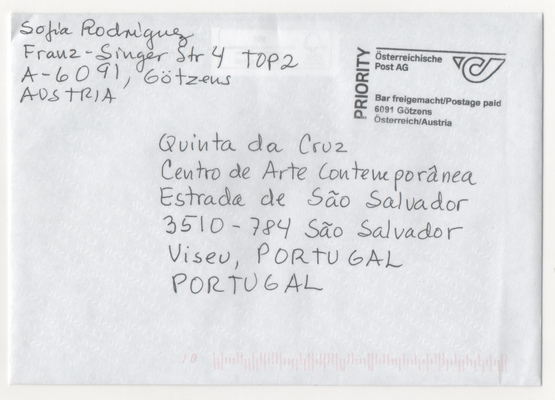 Sofia Rodriguez
Franz-Singer Str 4 TOP2
A-6091, Götzens
AUSTRIA
PRIORITY
Österreichische
Post AG
Bar freigemacht/Postage paid
6091 Götzens
Österreich/Austria
Quinta da Cruz
Centro de Arte Contemporânea
Estrada de São Salvador
3510-784 São Salvador
Viseu, PORTUGAL
PORTUGAL
10